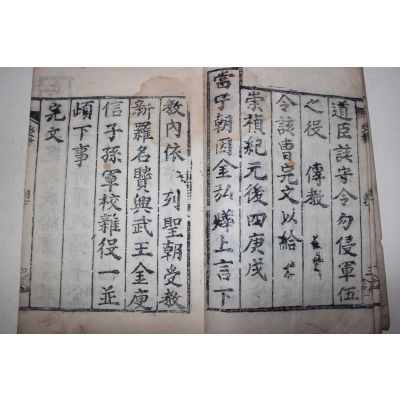 道臣該守令勿侵軍伍
之役 傳教
令該曹完文以給
崇禎紀元後四庚戌
當宁朝因金弘燁上言下
教內依 列聖朝受教
新羅名賢興武王金庾
信子孫軍校雜役一並
頉下事
完文